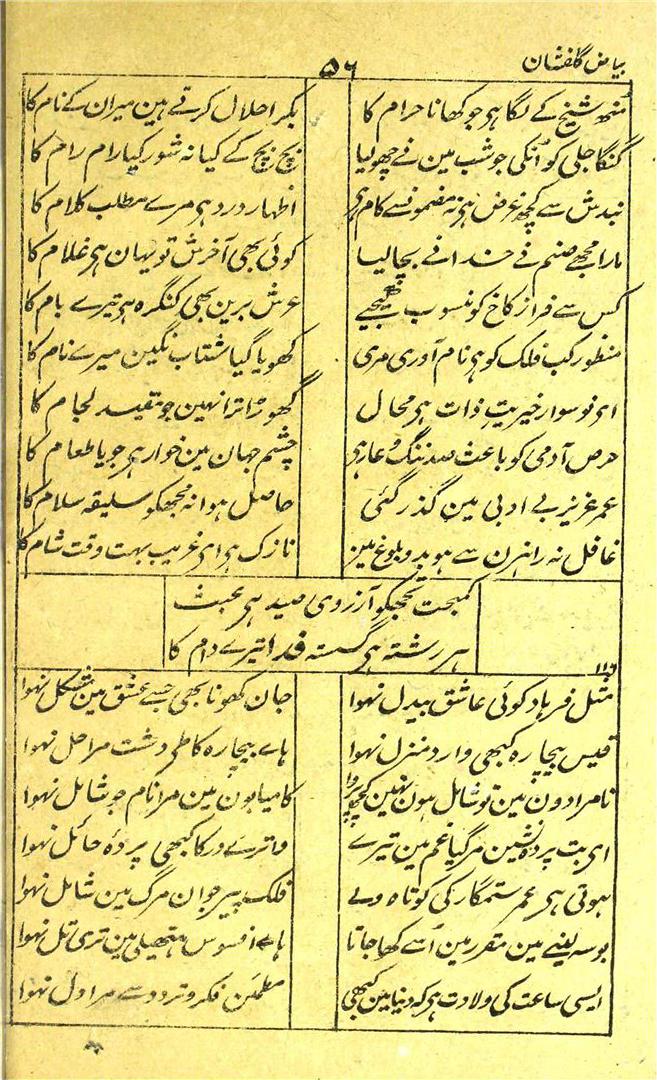 بیاض گلفشان
۵٦
منھ شیخ کے لگا ہر جو کھانا حرام کا بکرا حلال کرتے ہین میران کے نام کا
گنگا جلی کو اُنکی جو شب مین نے چھو لیا بچ بچ کے کیا نہ شور کیا رام رام کا
بندش سے کچھ غرض ہر نہ مضمونسے کام ہر اظہار درد ہر مرے مطلب کلام کا
مارا مجھے صنم نے خدا نے بچا لیا کوئی بھی آخرش تو یہان ہر غلام کا
کس سے فراز کاخ کو منسوب کیجیے عرش برین بھی کنگرہ ہر تیرے بام کا
منظور کب فلک کو ہر نام آوری مری کھویا گیا شتاب نگین میرے نام کا
ای نو سوار خیریت ذات ہر محال گھوڑا ترا نہین جو مقید لجام کا
حرص آدمی کو باعث صد ننگ و عار ہر چشم جہان مین خوار ہر جویا طعام کا
عمر عزیز بے ادبی مین گذر گئی حاصل ہوا نہ مجھکو سلیقہ سلام کا
غافل نہ راہزن سے ہو بدو بلوغ مین نازک ہر ای غریب بہت وقت شام کا
کمبخت تجھکو آرزوی صید ہر عبث
ہر رشتہ ہر گسستہ فدا تیرے دام کا
۱۱٦
مثل فرہاد کوئی عاشق بیدل نہوا جان کھونا بھی جسے عشق مین مشکل نہوا
قیس بیچارہ کبھی وارد منزل نہوا ہاے بیچارہ کا طی دشت مراحل نہوا
نامرادون مین تو شامل ہون نہین کچھ پروا کامیابون مین مرا نام جو شامل نہوا
ای بت پردہ نشین مر گیا غم مین تیرے وا ترے در کا کبھی پردۂ حائل نہوا
ہوتی ہر عمر ستمگار کی کوتاہ ولے فلک پیر جوان مرگ مین شامل نہوا
بوسہ لینے مین مقرر مین اُسے کھا جاتا ہاے افسوس ہتھیلی مین تری تل نہوا
ایسی ساعت کی ولادت ہر کہ دنیا مین کبھی مطمئن فکر و تردد سے مرا دل نہوا